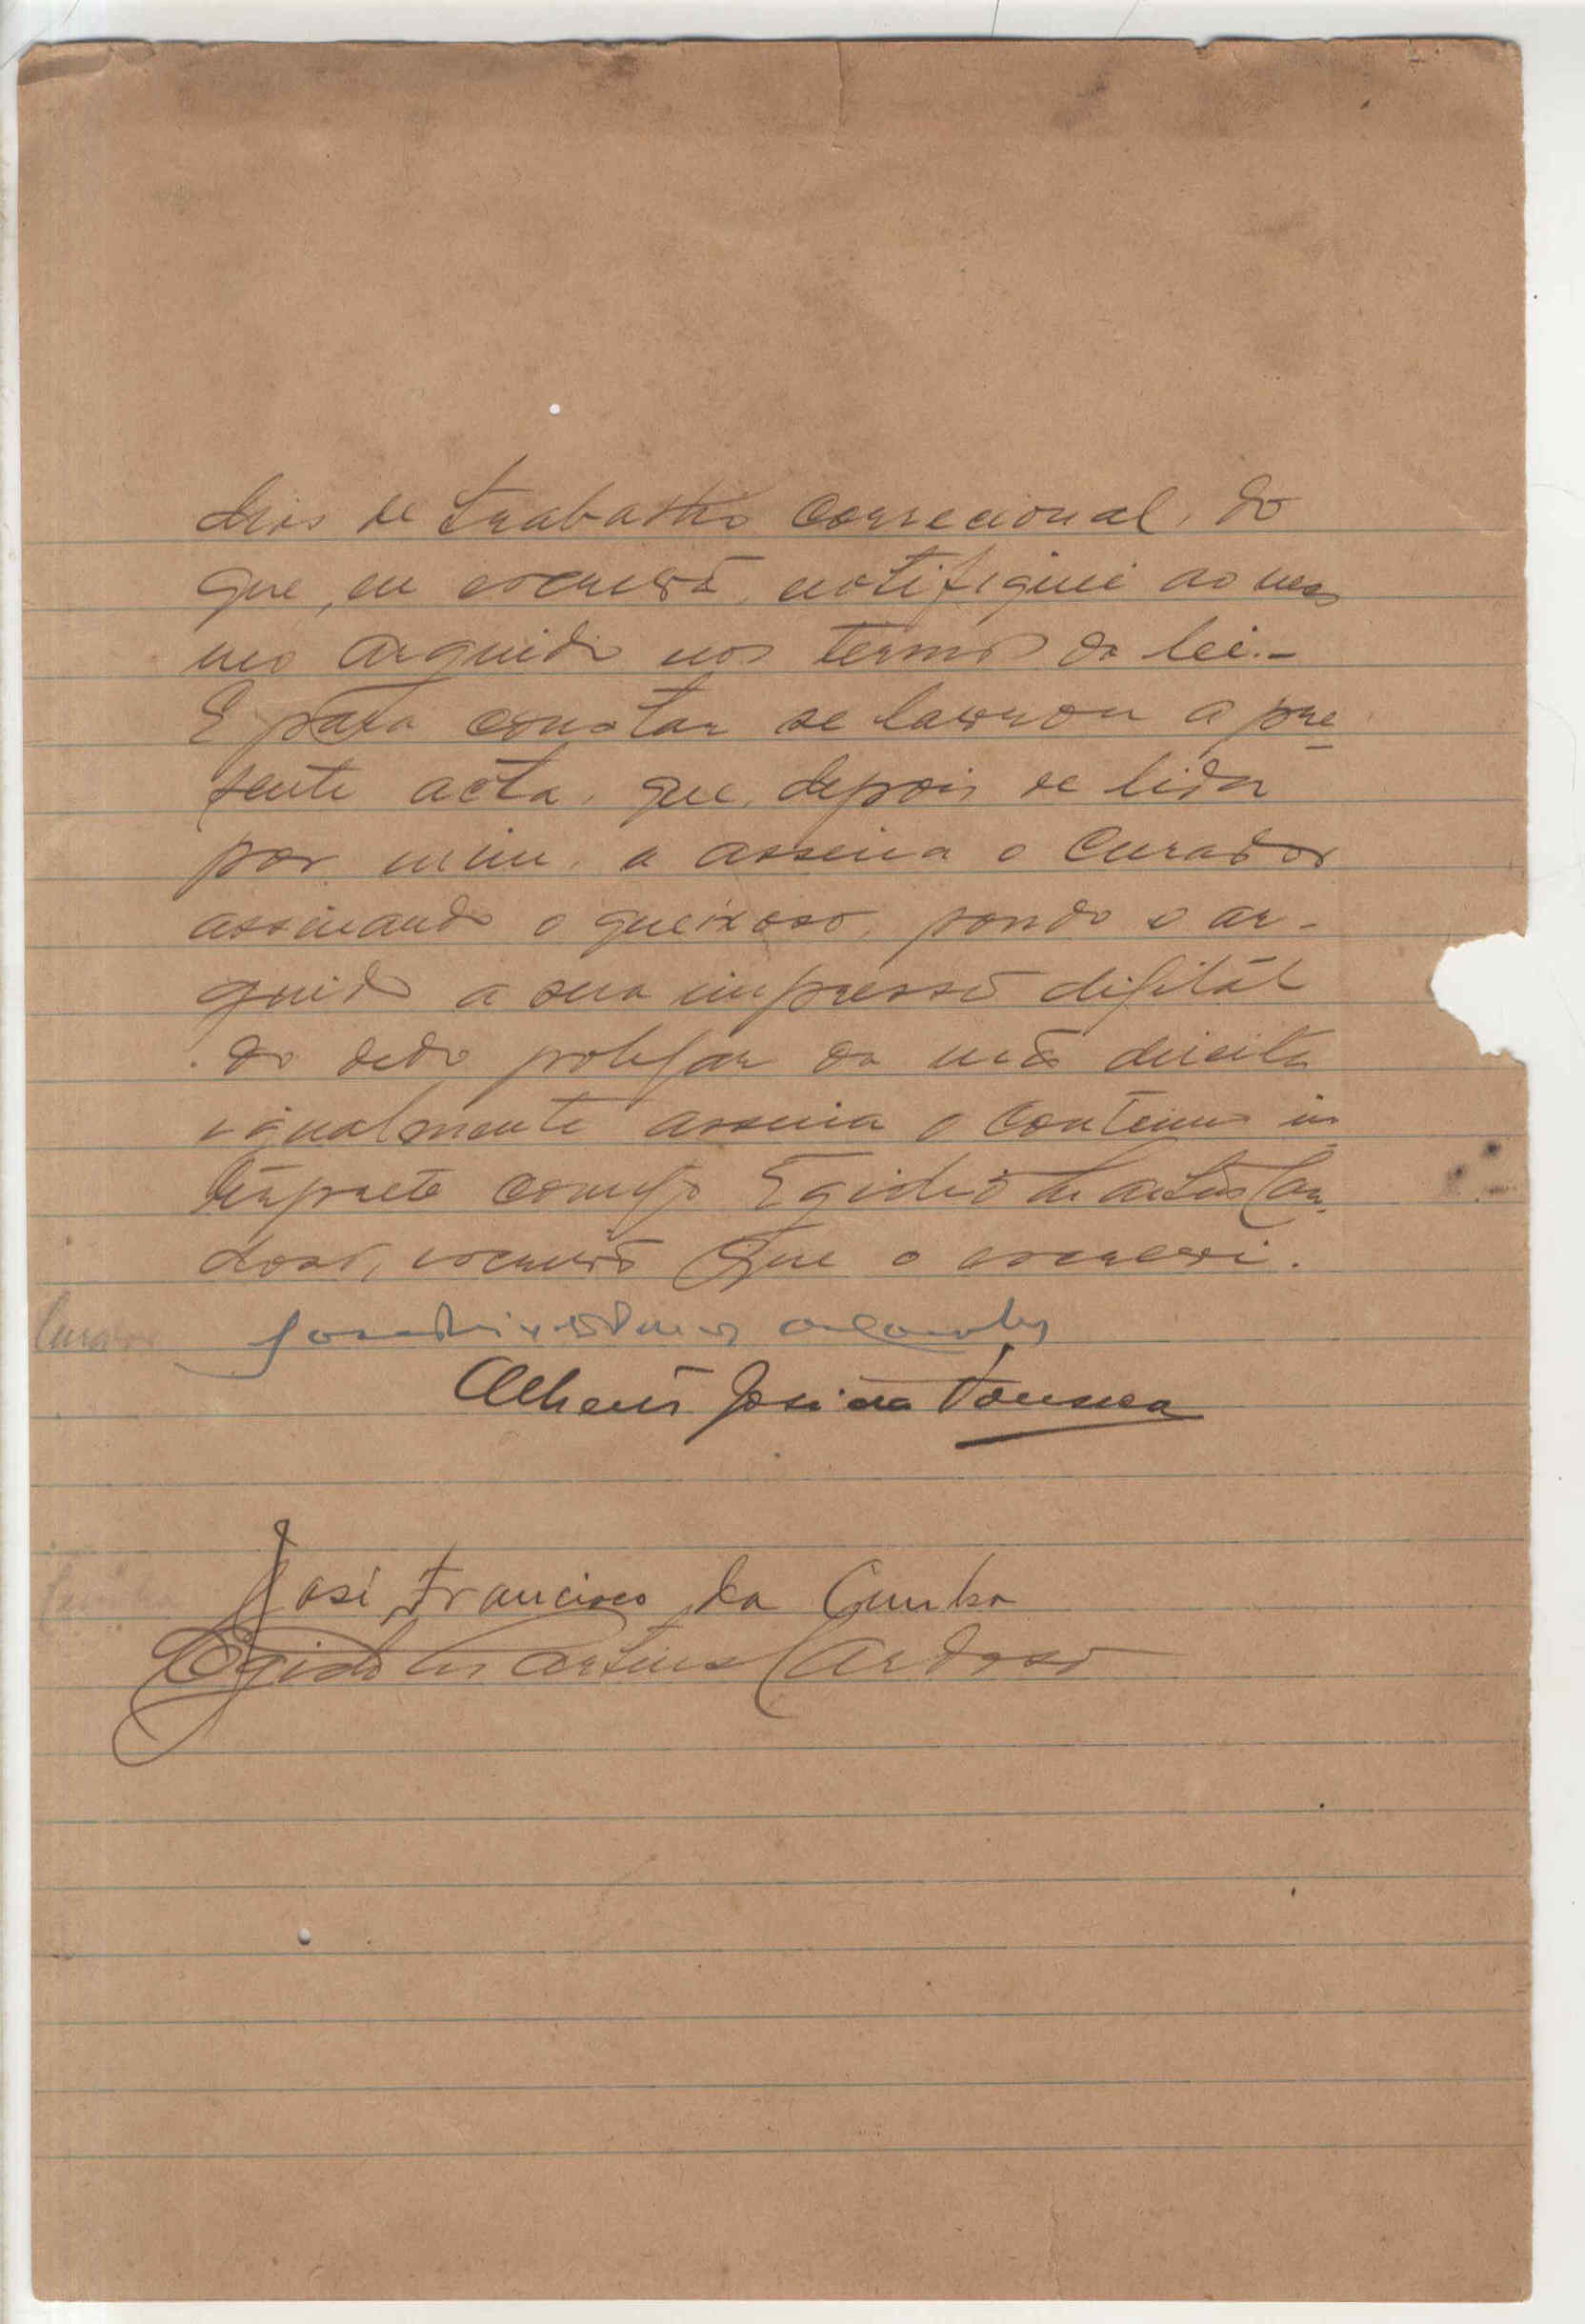 dias de trabalho correcional, do
que, eu escrivão, notifiquei ao mes
mo arguido nos termos da lei.-
E para constar se lavrou a pre
sente acta, que, depois de lida
por mim, a assina o Curador
assinando o queixoso, pondo o ar-
guido a sua impressão digital
do dedo polegar da mão direita
igualmente assina o
intérprete comigo Egidio Martins Car
doso, escrivão que o escrevi.
Curador José
José da Fonseca
José Francisco da Cunha
Egidio Martins Cardoso